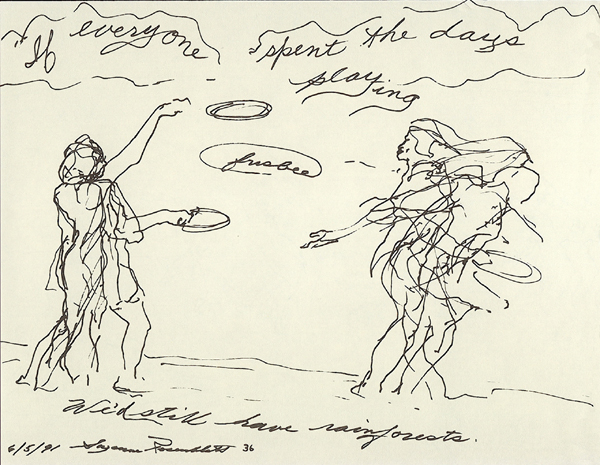 "If everyone spent the days
playing
frisbee
We'd still have rainforests.
6/5/91 Suzanne Rosenblatt 36